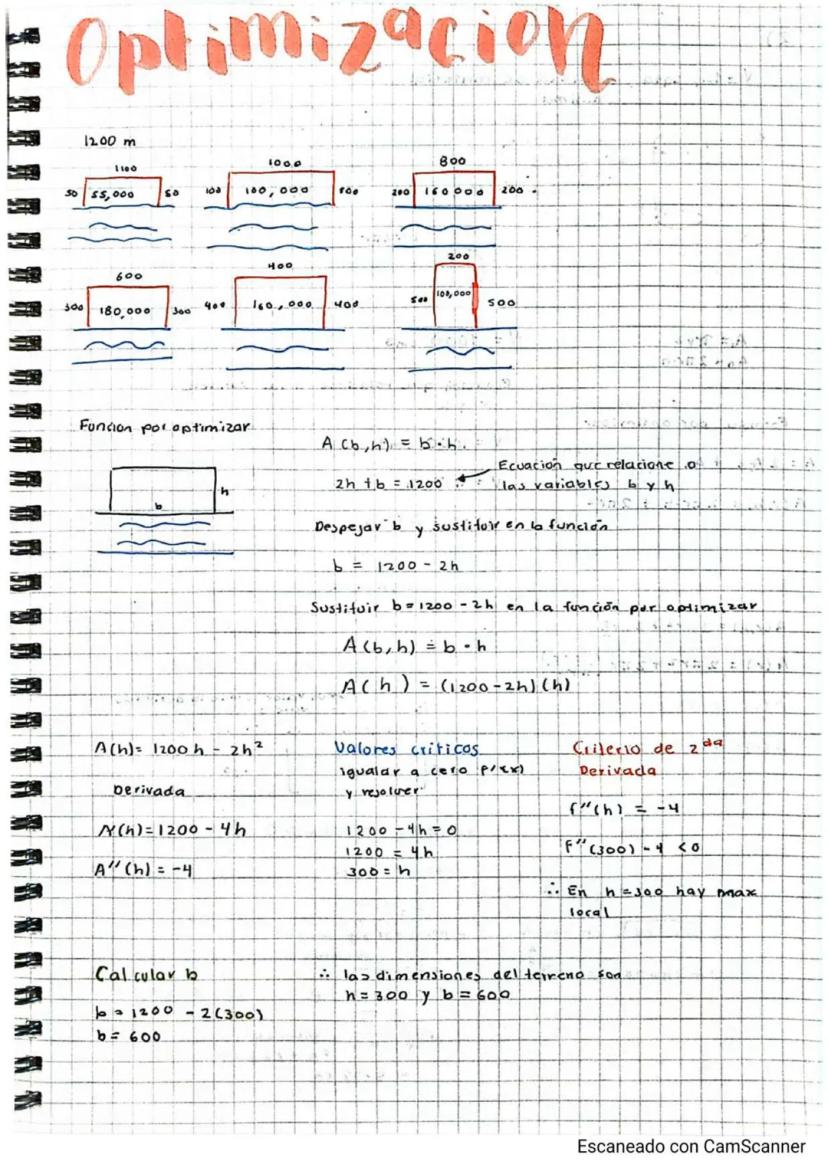 Optimización
1200 m
1100
50 55,000 50
1000
100 100,000 100
800
200 160000 200
600
300 180,000 300
400
400 160,000 400
200
500 100,000 500
Función por optimizar
h
b
A(b,h) = b·h
2h + b = 1200
Ecuación que relacione a
las variables b y h
Despejar b y sustituir en la función
b = 1200 - 2h
Sustituir b = 1200 - 2h en la función por optimizar
A(b,h) = b · h
A(h) = (1200-2h)(h)
A(h) = 1200h - 2h²
Derivada
A'(h) = 1200 - 4h
A''(h) = -4
Valores críticos
igualar a cero f'(x)
y resolver
1200 - 4h = 0
1200 = 4h
300 = h
Criterio de 2da
Derivada
f''(h) = -4
f''(300) - 4 < 0
∴ En h = 300 hay max
local
Calcular b
b = 1200 - 2(300)
b = 600
∴ las dimensiones del terreno son
h = 300 y b = 600
Escaneado con CamScanner